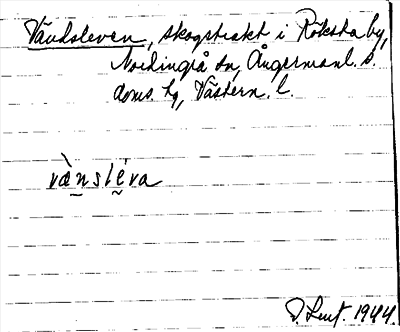 Vändsleven, skogstrakt i Röksta by,
Nordingrå sn, Ångermanl. s.
doms. hg, Västern. l.
væ̀nslé̱va
D. Lent. 1944.